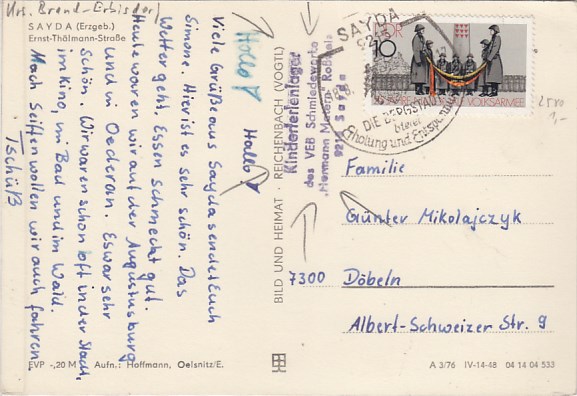 Krs. Brand-Erbisdorf
SAYDA (Erzgeb.)
Ernst-Thälmann-Straße
Hallo!
Hallo!
Viele Grüße aus Sayda sendet Euch
Simone. Hier ist es sehr schön. Das
Wetter geht. Essen schmeckt gut.
Heute waren wir auf der Augustusburg
und in Oederan. Es war sehr
schön. Wir waren schon oft in der Stadt,
im Kino, im Bad und im Wald.
Nach Seiffen wollen wir auch fahren.
Tschüß
EVP -,20 M Aufn.: Hoffmann, Oelsnitz/E.
BILD UND HEIMAT · REICHENBACH (VOGTL)
Kinderferienlager
des VEB Schmiedewerke
"Hermann Matern" Roßwein
Sayda
SAYDA
DIE BERGSTADT
bietet
Erholung und Entspannung
DDR
10
VOLKSARMEE
2500
1,-
Familie
Günter Mikolajczyk
7300 Döbeln
Albert-Schweizer Str. 9
A 3/76 IV-14-48 04 14 04 533